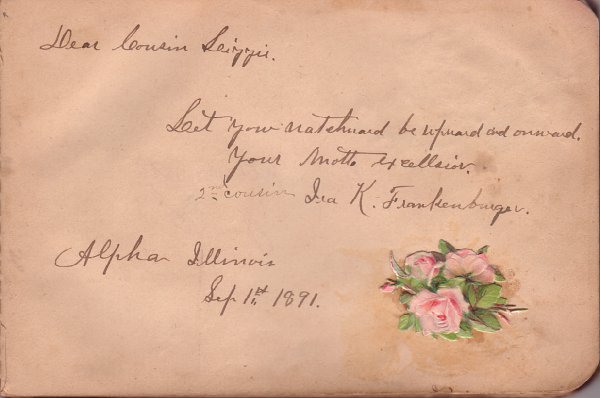 Dear Cousin Lizzie.
Let your watchword be upward and onward.
Your Motto excellsior.
2nd cousin Ira K. Frankenburger.
Alpha Illinois
Sep 1st 1891.